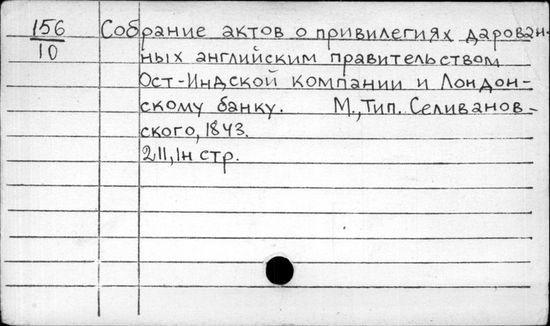 156
10
Собрание актов о привилегиях дарован-
ных английским правительством
Ост-Индской компании и Лондон-
скому банку. М., Тип. Селиванов-
ского, 1843.
211, 1н стр.